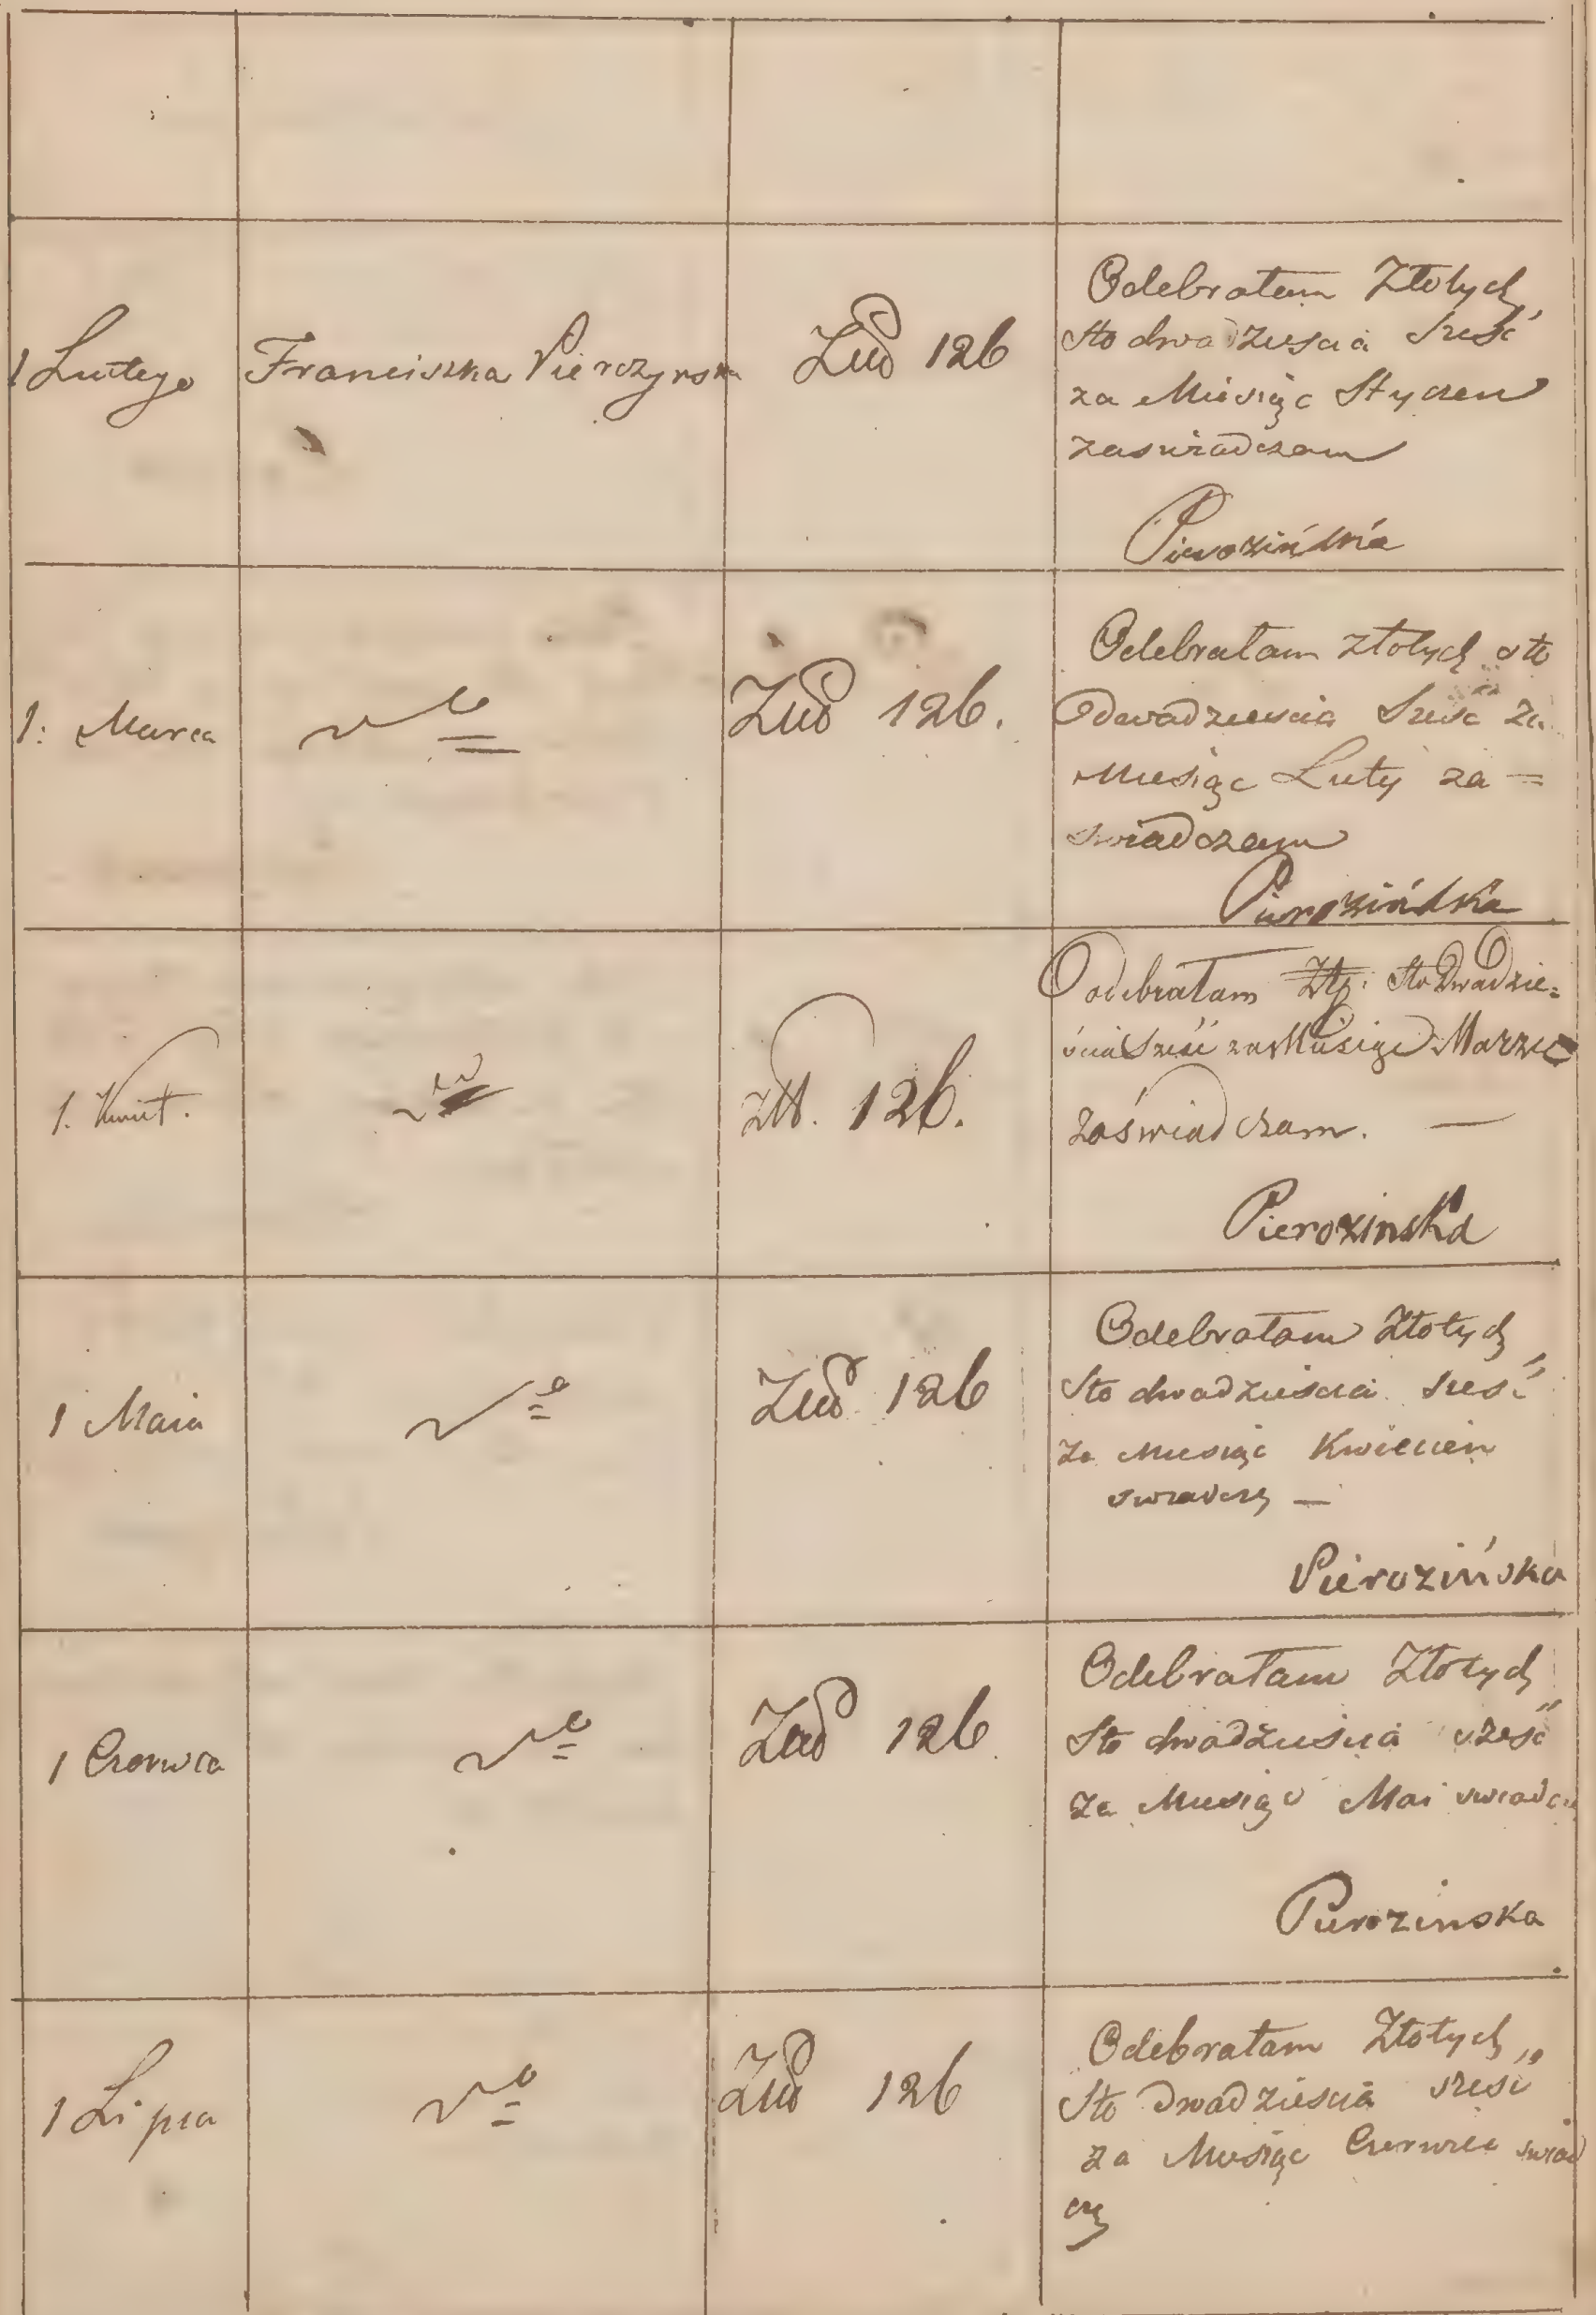 1 Lutego
Franciszka Pierczynska
126
Odebratam Złotych
sto dwadziescia szesć
za Miesiąc Styczen
zaswiadczam
Pierozińska
1: Marca
126.
Odebratam złotych sto
dwadziescia szesć za
Miesiąc Luty za=
swiadczam
Pierozińska
1. Kwiet.
złł. 126.
Odebrałam Złp: Sto Dwadzie=
ścia Sześć za Miesiąc Marzec
zaświadczam. —
Pierozinska
1 Maia
126
Odebratam Złotych
sto dwadziescia szesć
za Miesiąc Kwiecien
swiadczę —
Pierozińska
1 Czerwca
126
Odebratam Złotych
sto dwadziescia szesć
za Miesiąc Mai swiadczę
Pierozinska
1 Lipca
126
Odebratam Złotych
Sto dwadziescia szesć
za Miesiąc Czerwiec swiad
czę